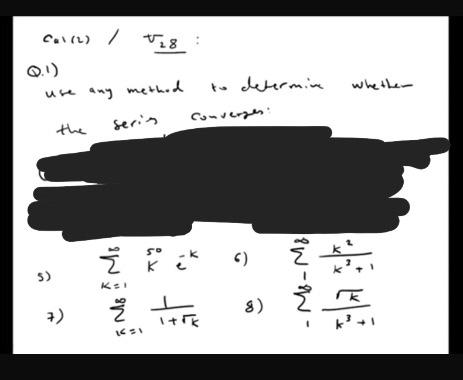 Cal(2) / T28 :
Q.1)
use any method to determine whether
the series converges:
5) ∞ Σ K=1 K^50 e^-K 6) ∞ Σ 1 k^2 / k^3 + 1
7) ∞ Σ K=1 1 / 1+√k 8) ∞ Σ 1 √k / k^3 + 1